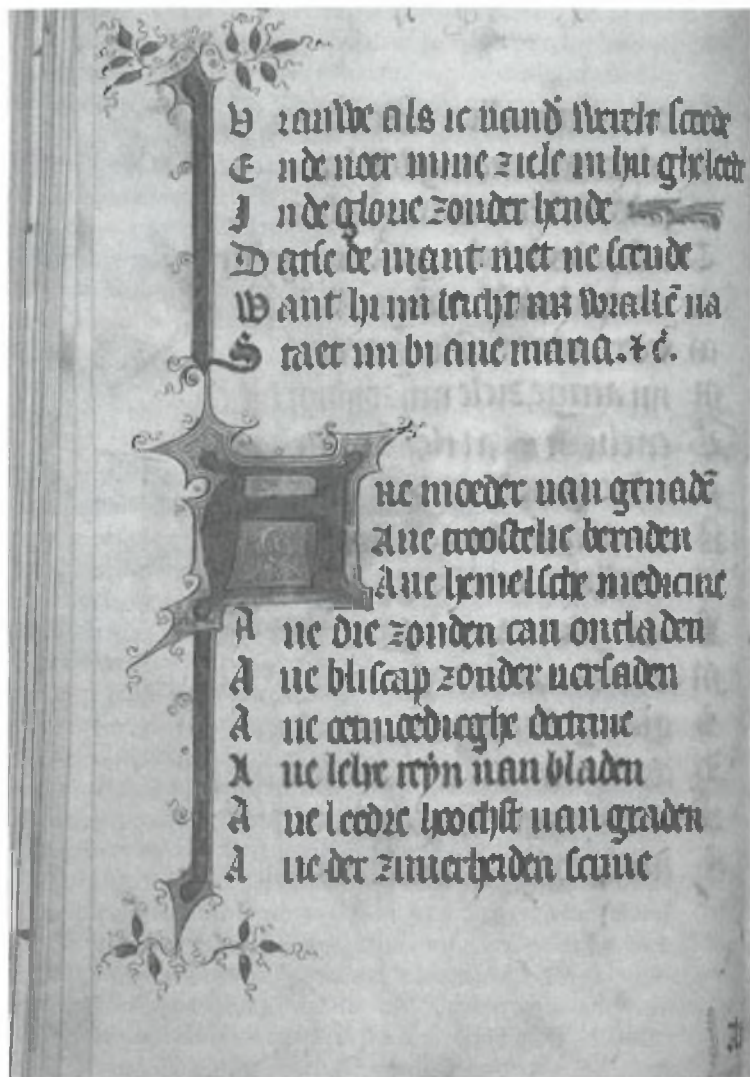 Vrauwe als ic vand' werelt scede
Ende voer mine ziele in hu gheleede
In de glorie zonder hende
Datse de viant niet ne scende
Want hi mi sticht nu vralic̄ na
Staet mi bi aue maria. &c̄.
Aue moeder uan genadē
Aue troostelic beraden
Aue hemelsche medicine
Aue die zonden can ontladen
Aue bliscap zonder uersaden
Aue oetmoedieghe doctrine
Aue lelye reyn uan bladen
Aue leedre hoochst uan graden
Aue der ziuerheiden scrine